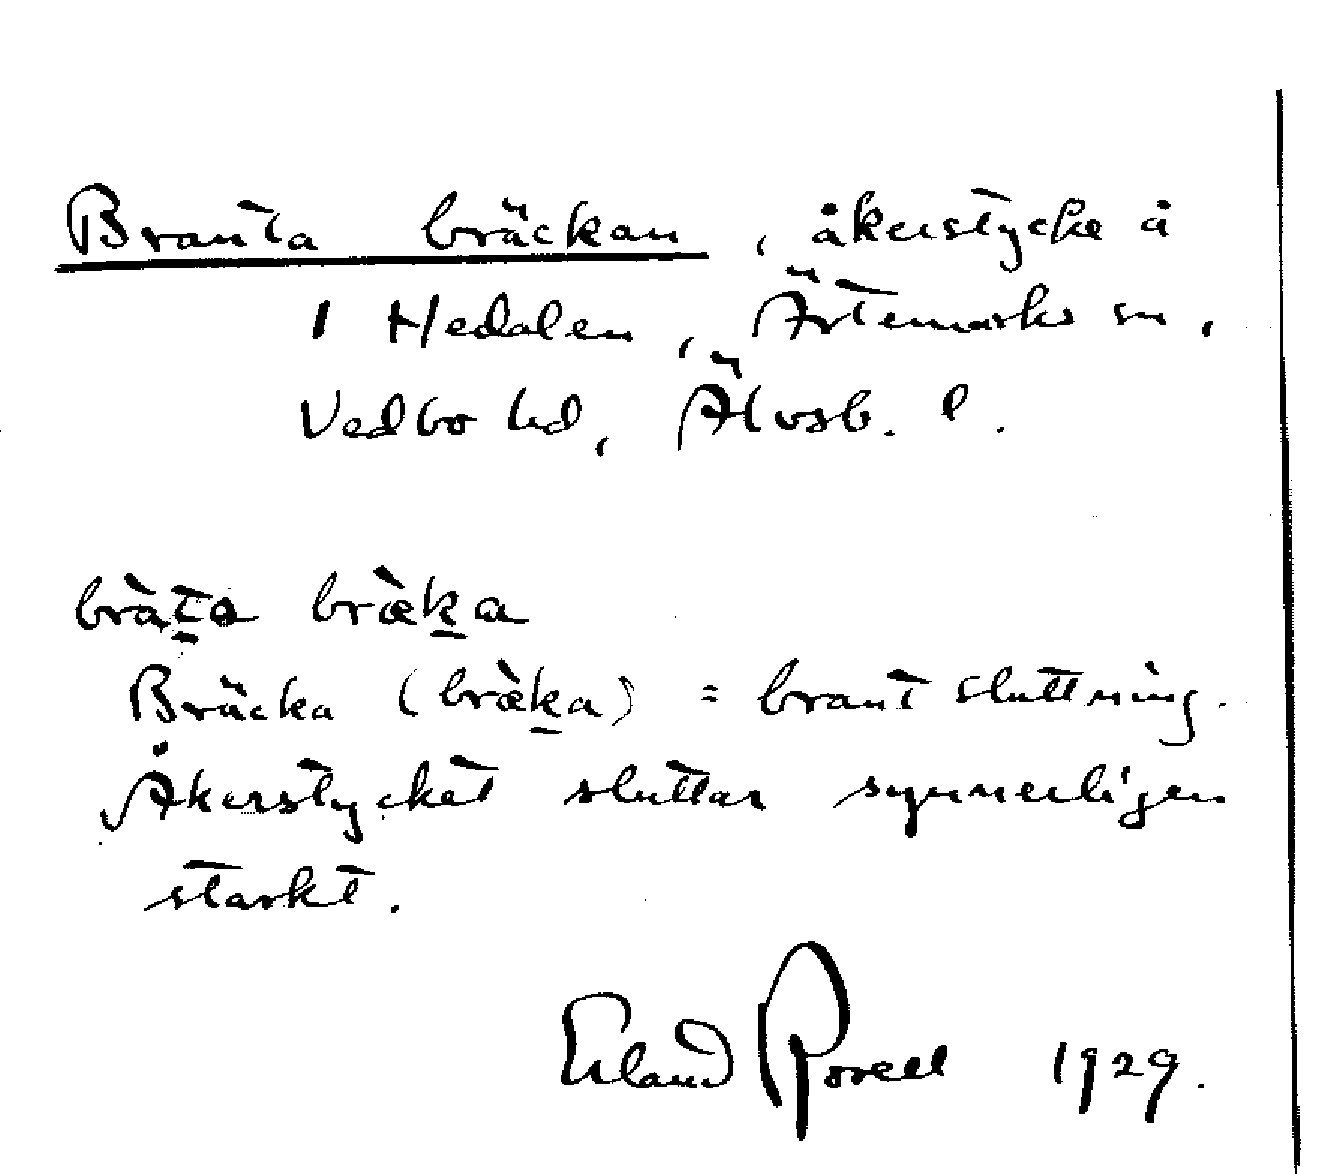 Branta bräckan, åkerstycke å
1 Hedalen, Ärtemarks sn,
Vedbo hd, Älvsb. l.
bràt̲a bræ̀k̲a
Bräcka (bræ̀k̲a) = brant sluttning.
Åkerstycket sluttar synnerligen
starkt.
Erland Rosell 1929.